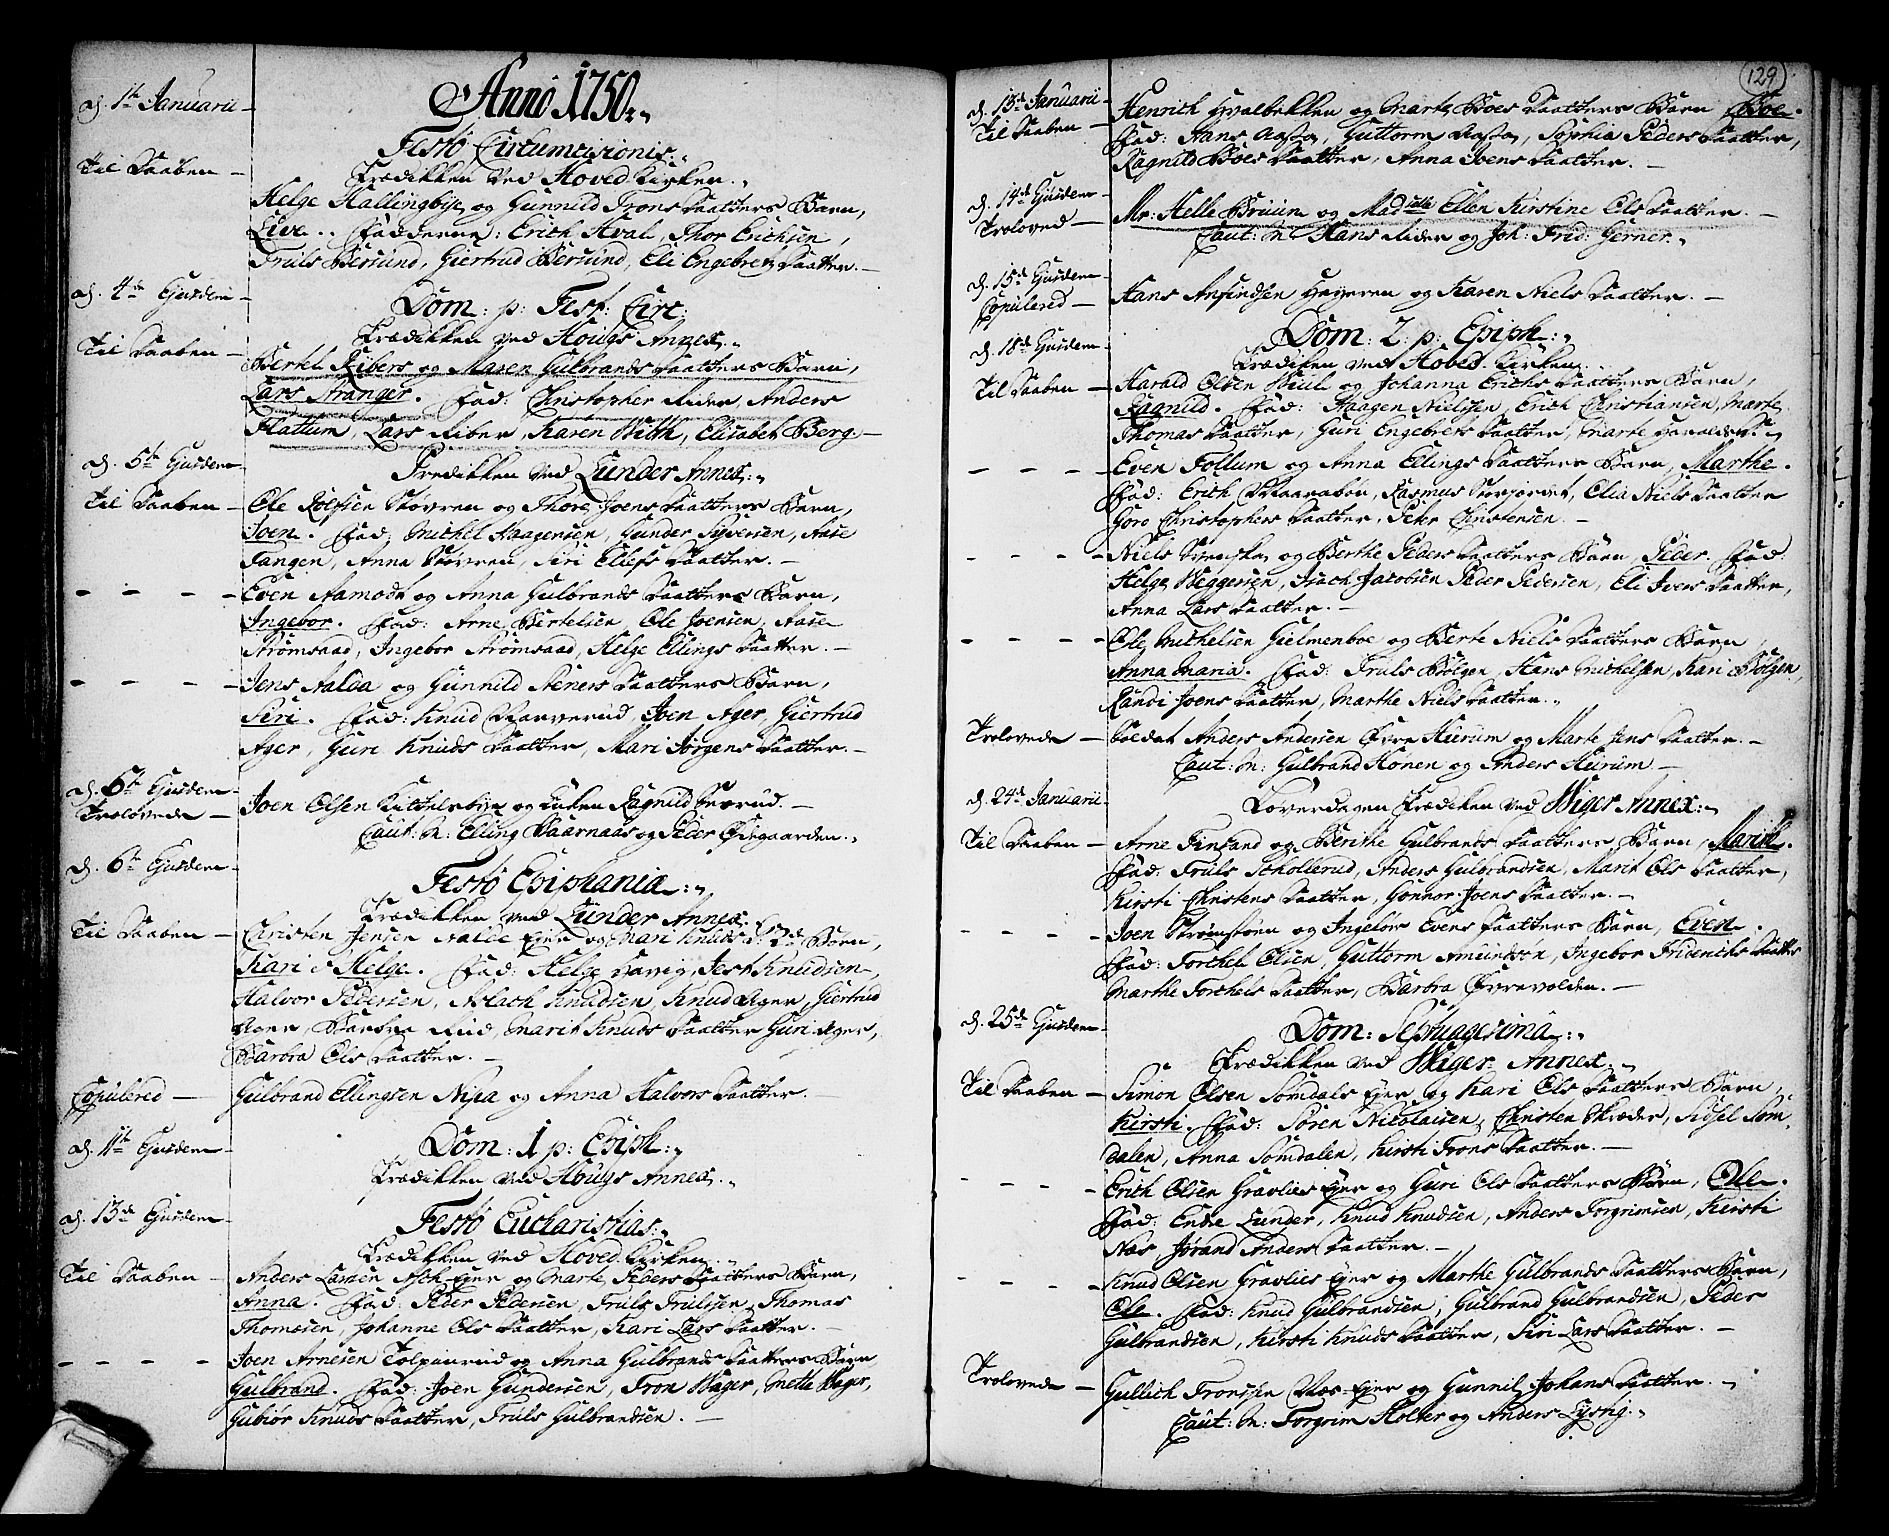 Anno 1750.
d. 1te Januarii
Festo Circumcisionis.
Prædikken ved Hoved Kirken.
Til Daaben
Helge Hallingbye og Gunnild Trons Daatters Barn,
Live. Faddere: Erich Hval, Thor Erichsen,
Truls Bersund, Giertrud Bersund, Eli Engebrets Daatter.
d. 4de Ejusdem
Dom: p: Fest: Circ:
Prædikken ved Hougs Annex.
Til Daaben
Bertel Ribers og Maren Gulbrands Daatters Barn,
Lars Stranger. Fad: Christopher Rider, Anders
Flattum, Lars Riber, Karen With, Elisabet Berg.
d. 5te Ejusdem
Prædikken ved Lunder Annex.
Til Daaben
Ole Rolfsen Støvren og Thore Joens Daatters Barn,
Joen. Fad: Michel Haagensen, Gunder Syversen, Aase
Tangen, Anna Støvren, Siri Eliefs Daatter.
Even Aamodt og Anna Gulbrands Daatters Barn,
Ingebor. Fad: Arne Bertelsen, Ole Joensen, Aase
Strømsaad, Ingebor Strømsaad, Helge Ellings Daatter.
Jens Aalda og Gunnild Steners Daatters Barn,
Siri. Fad: Knud, Joen Ager, Giertrud
Ager, Guri Knuds Daatter, Mari Jørgens Daatter.
d. 6te Ejusdem
Trolovede
Joen Olsen og Enken Ragnild
Caut: M: Elling Saarnaas og Peder Ødegaarden.
d. 6te Ejusdem
Festo Epiphaniæ.
Prædikken ved Lunder Annex.
Til Daaben
Christen Jensen Aalde Ejer og Mari Knuds D: 2de Børn,
Kari & Helge. Fad: Helge Havig, Jest Knudsen,
Halvor Pedersen, Aslach Knudsen, Knud Ager, Giertrud
Ager, Barbra Rud, Marit Knuds Daatter, Guri Ager,
Barbra Ols Daatter.
Copulered
Gulbrand Ellingsen Nipa og Anna Halvors Daatter.
d. 11te Ejusdem
Dom: 1 p: Epiph:
Prædikken ved Hougs Annex.
d. 13de Ejusdem
Festo Eucharistias.
Prædikken ved Hoved Kirken.
Til Daaben
Anders Larsen Asch Ejer og Marte Peders Daatters Barn,
Anna. Fad: Peder Pedersen, Truls Trulssen, Thomas
Thomesen, Johanne Ols Daatter, Kari Lars Daatter.
Joen Arnesen Tolpinrud og Anna Gulbrands Daatters Barn
Gulbrand. Fad: Joen Gundersen, Tron Wager, Mette Wager,
Gubiør Knuds Daatter, Truls Gulbrandsen.
129
d. 13de Januarii
Til Daaben
Henrich Hvalbekken og Marte Boes Daatters Barn Boe.
Fad: Hans Aasta, Guttorm Aasta, Sophia Peders Daatter,
Ragnild Boes Daatter, Anna Joens Daatter.
d. 14de Ejusdem
Troloved
Mr: Helle Bruun og Madselle Ellen Kirstine Ols Daatter.
Caut: M: Hans Rider og Joh: Frid: Gerner.
d. 15de Ejusdem
Copulered
Hans Anfindsen og Karen Niels Daatter.
d. 18de Ejusdem
Dom: 2 p: Epiph:
Prædiken ved Hoved Kirken.
Til Daaben
Harald Olsen Wiul og Johanna Erichs Daatters Barn,
Ragnild. Fad: Haagen Nielssen, Erich Christiansen, Marte
Thomas Daatter, Guri Engebrets Daatter, Marte Haralds D:
Even Follum og Anna Ellings Daatters Barn, Marthe.
Fad: Erich, Rasmus Storjordet, Elia Niels Daatter
Goro Christophers Daatter, Peter Christensen.
Niels og Berthe Peders Daatters Barn, Peder. Fad:
Helge Weggersen, Isach Jacobsen, Peder Pedersen, Eli Ivers Daatter,
Anna Lars Daatter.
Ole Michelsen Gielmenboe og Berte Niels Daatters Barn
Anna Maria. Fad: Truls Bølgen, Hans Michelsen, Kari Bølgen,
Randi Joens Daatter, Marthe Niels Daatter.
Trolovede
Soldat Anders Andersen Øvre Hurum og Marte Jens Daatter.
Caut: M: Gulbrand Hønen og Anders Hurum
d. 24de Januarii
Løverdagen Prædiken ved Wiger Annex.
Til Daaben
Arne Finsand og Berithe Gulbrands Daatters Barn, Marith.
Fad: Truls Schollerud, Anders Gulbrandsen, Marit Ols Daatter,
Kirsti Christens Daatter, Gonnor Joens Daatter.
Joen Strømsoen og Ingebor Evens Daatters Barn, Even.
Fad: Torchel Olsen, Guttorm Amundsøn, Ingebor Friderichs Daatter
Marthe Torchels Daatter, Barbra Øvrevolden.
d. 25de Ejusdem
Dom: Septuagesima.
Prædikken ved Wiger Annex.
Til Daaben
Simon Olsen Somdals Ejer og Kari Ols Daatters Barn,
Kirsti. Fad: Søren Nicolaisen, Christen Skræder, Sidsel Som-
dalen, Anna Somdalen, Kirsti Trons Daatter.
Erich Olsen Gravlies Ejer og Guri Ols Daatters Barn, Ole.
Fad: Endre Lunder, Knud Knudsen, Anders Torgrimsen, Kirsti
Næs, Jørand Anders Daatter.
Knud Olsen Gravlies Ejer og Marthe Gulbrands Daatters Barn,
Ole. Fad: Knud Gulbrandsen, Gulbrand Gulbrandsen, Peder
Gulbrandsen, Kirsti Knuds Daatter, Siri Lars Daatter.
Trolovede
Gullich Tronssen Næs-Ejer og Gunnil Johans Daatter.
Caut: M: Torgrim Holter og Anders Lystig.